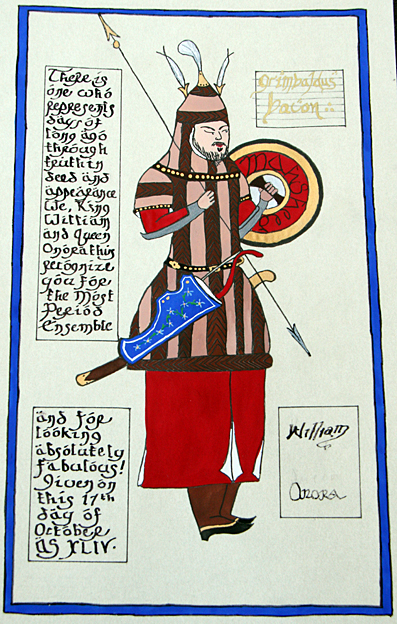 There is
one who
represents
days of
long ago
through
truth in
deed and
appearance
We, King
William
and Queen
Onora this
recognize
you for
the Most
Period
Ensemble
Grimbaldus
Bacon
and for
looking
absolutely
fabulous!
Given on
this 17th
day of
October
AS XLIV.
William